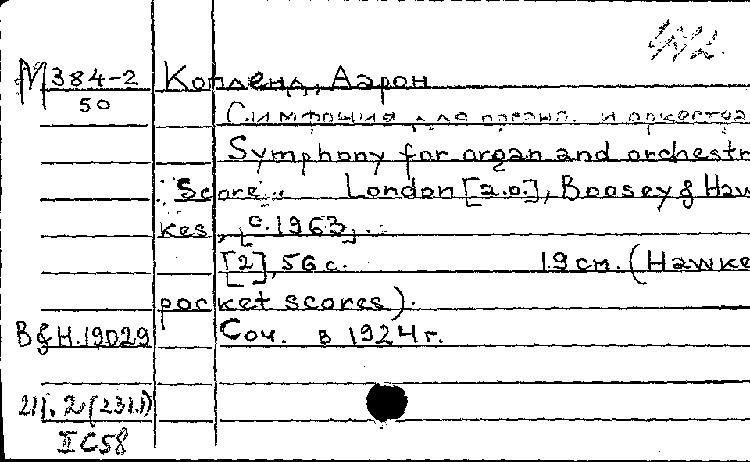 М 384-2 Копленд, Аарон
50
Симфония для органа и оркестра
Symphony for organ and orchestr
Score. London [a.o.], Boosey & Haw
kes, [c. 1963].
[2], 56 с. 19 см. (Hawke
pocket scores).
B & H. 19029 Соч. в 1924 г.
II C58